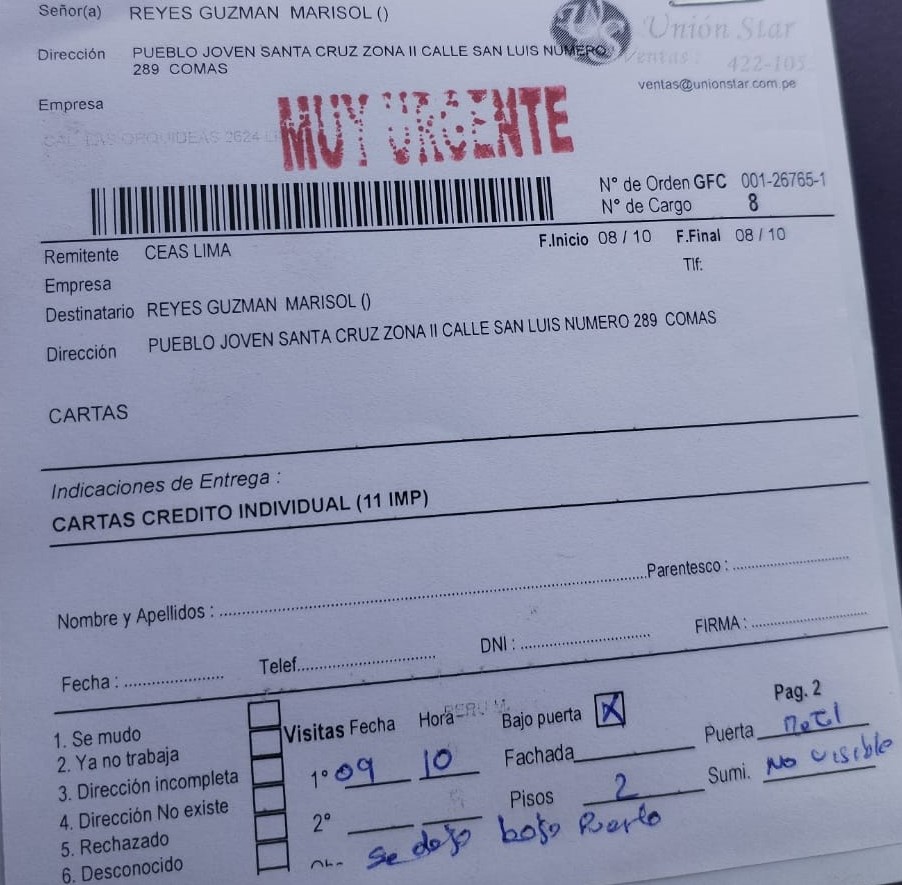 Señor(a) REYES GUZMAN MARISOL ()
Unión Star
Dirección PUEBLO JOVEN SANTA CRUZ ZONA II CALLE SAN LUIS NUMERO
289 COMAS
Ventas: 422-105
ventas@unionstar.com.pe
Empresa
CAL LAS ORQUIDEAS 2624
MUY URGENTE
N° de Orden GFC 001-26765-1
N° de Cargo 8
Remitente CEAS LIMA
F.Inicio 08 / 10 F.Final 08 / 10
Empresa
Tlf:
Destinatario REYES GUZMAN MARISOL ()
Dirección PUEBLO JOVEN SANTA CRUZ ZONA II CALLE SAN LUIS NUMERO 289 COMAS
CARTAS
Indicaciones de Entrega :
CARTAS CREDITO INDIVIDUAL (11 IMP)
Nombre y Apellidos : Parentesco :
Fecha : Telef. DNI : FIRMA :
Pag. 2
1. Se mudo
2. Ya no trabaja
3. Dirección incompleta
4. Dirección No existe
5. Rechazado
6. Desconocido
Visitas Fecha Hora Bajo puerta X
1° 09 10 Fachada Puerta Metl
2° Pisos 2 Sumi. No visible
Se dejo bajo Puerta